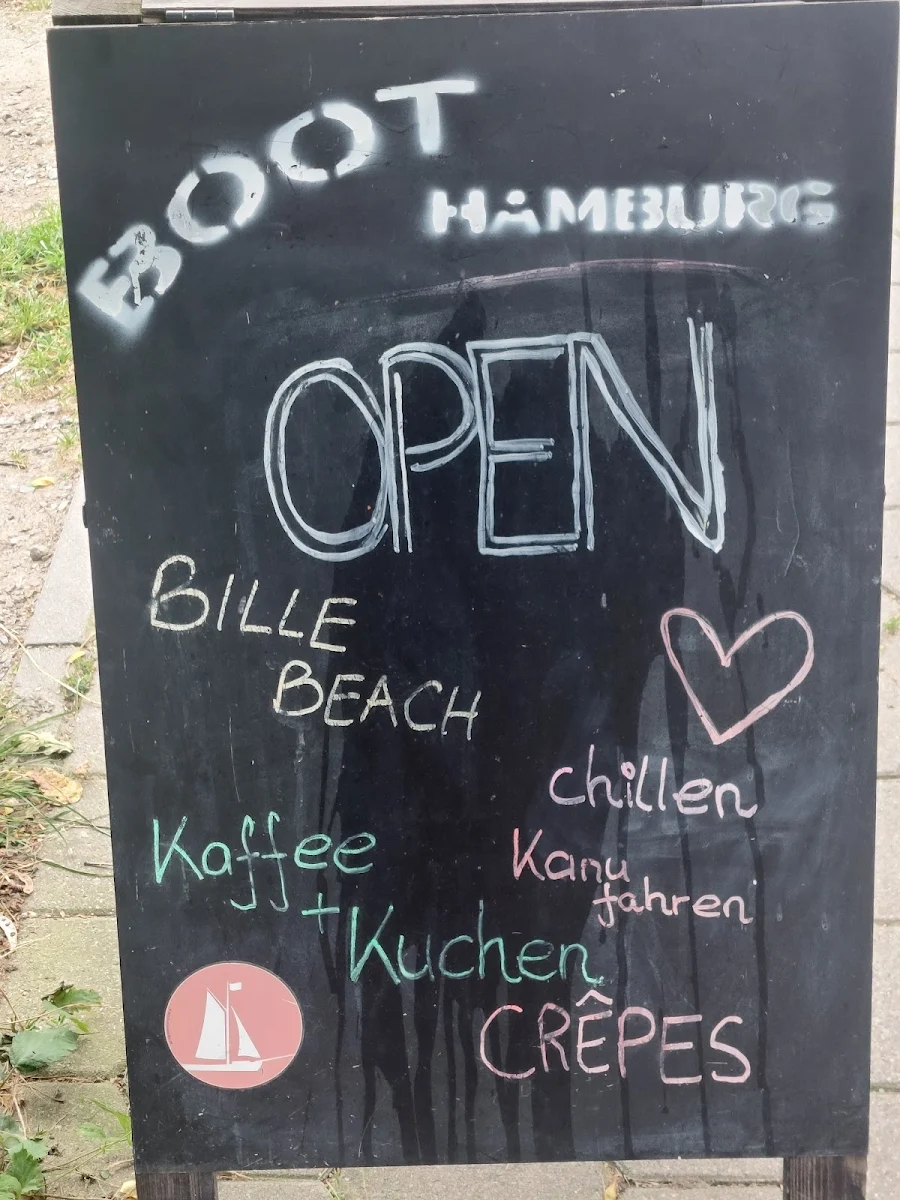 BOOT
HAMBURG
OPEN
BILLE
BEACH
chillen
Kaffee
Kanu
fahren
+ Kuchen
CRÊPES